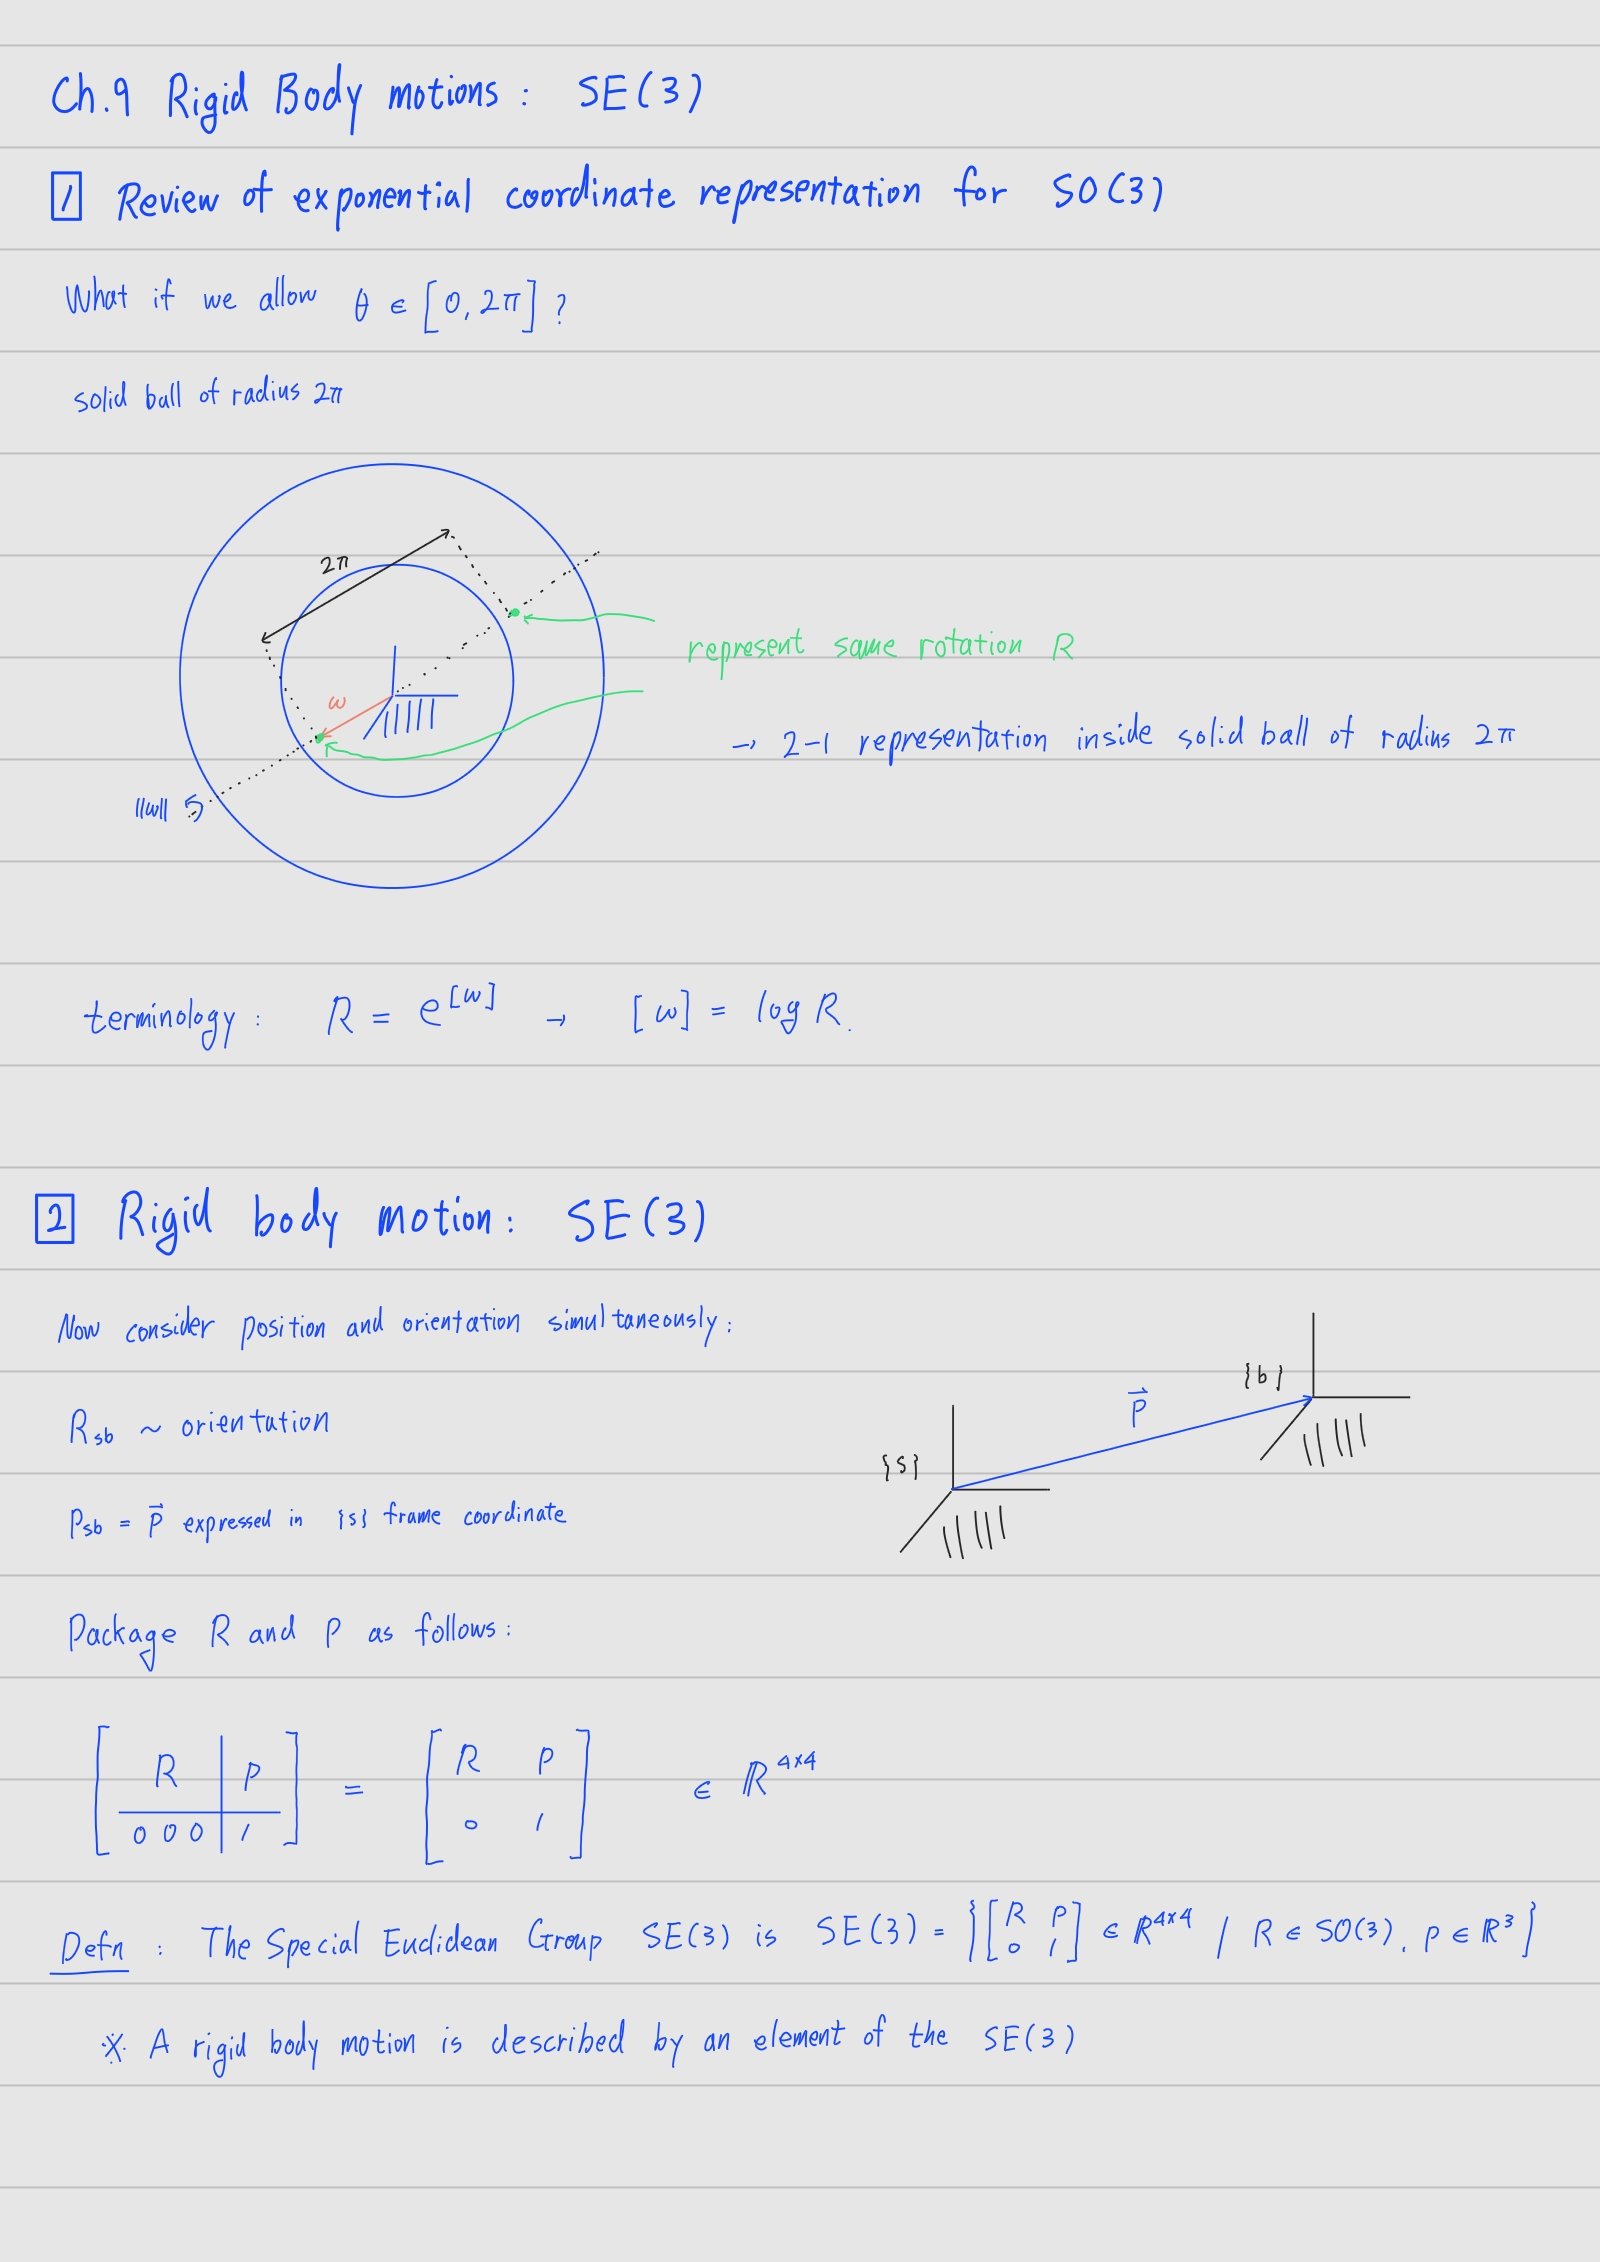 Ch.9 Rigid Body motions : SE(3)
1 Review of exponential coordinate representation for SO(3)
What if we allow θ ∈ [0, 2π] ?
solid ball of radius 2π
2π
ω
represent same rotation R
→ 2-1 representation inside solid ball of radius 2π
||ω||
terminology : R = e^[ω] → [ω] = log R.
2 Rigid body motion : SE(3)
Now consider position and orientation simultaneously :
{b}
R_sb ~ orientation
p⃗
{s}
P_sb = p⃗ expressed in {s} frame coordinate
Package R and p as follows :
[ R | p ; 0 0 0 | 1 ] = [ R p ; 0 1 ] ∈ ℝ^4×4
Defn : The Special Euclidean Group SE(3) is SE(3) = {[ R p ; 0 1 ] ∈ ℝ^4×4 / R ∈ SO(3), p ∈ ℝ^3}
※ A rigid body motion is described by an element of the SE(3)